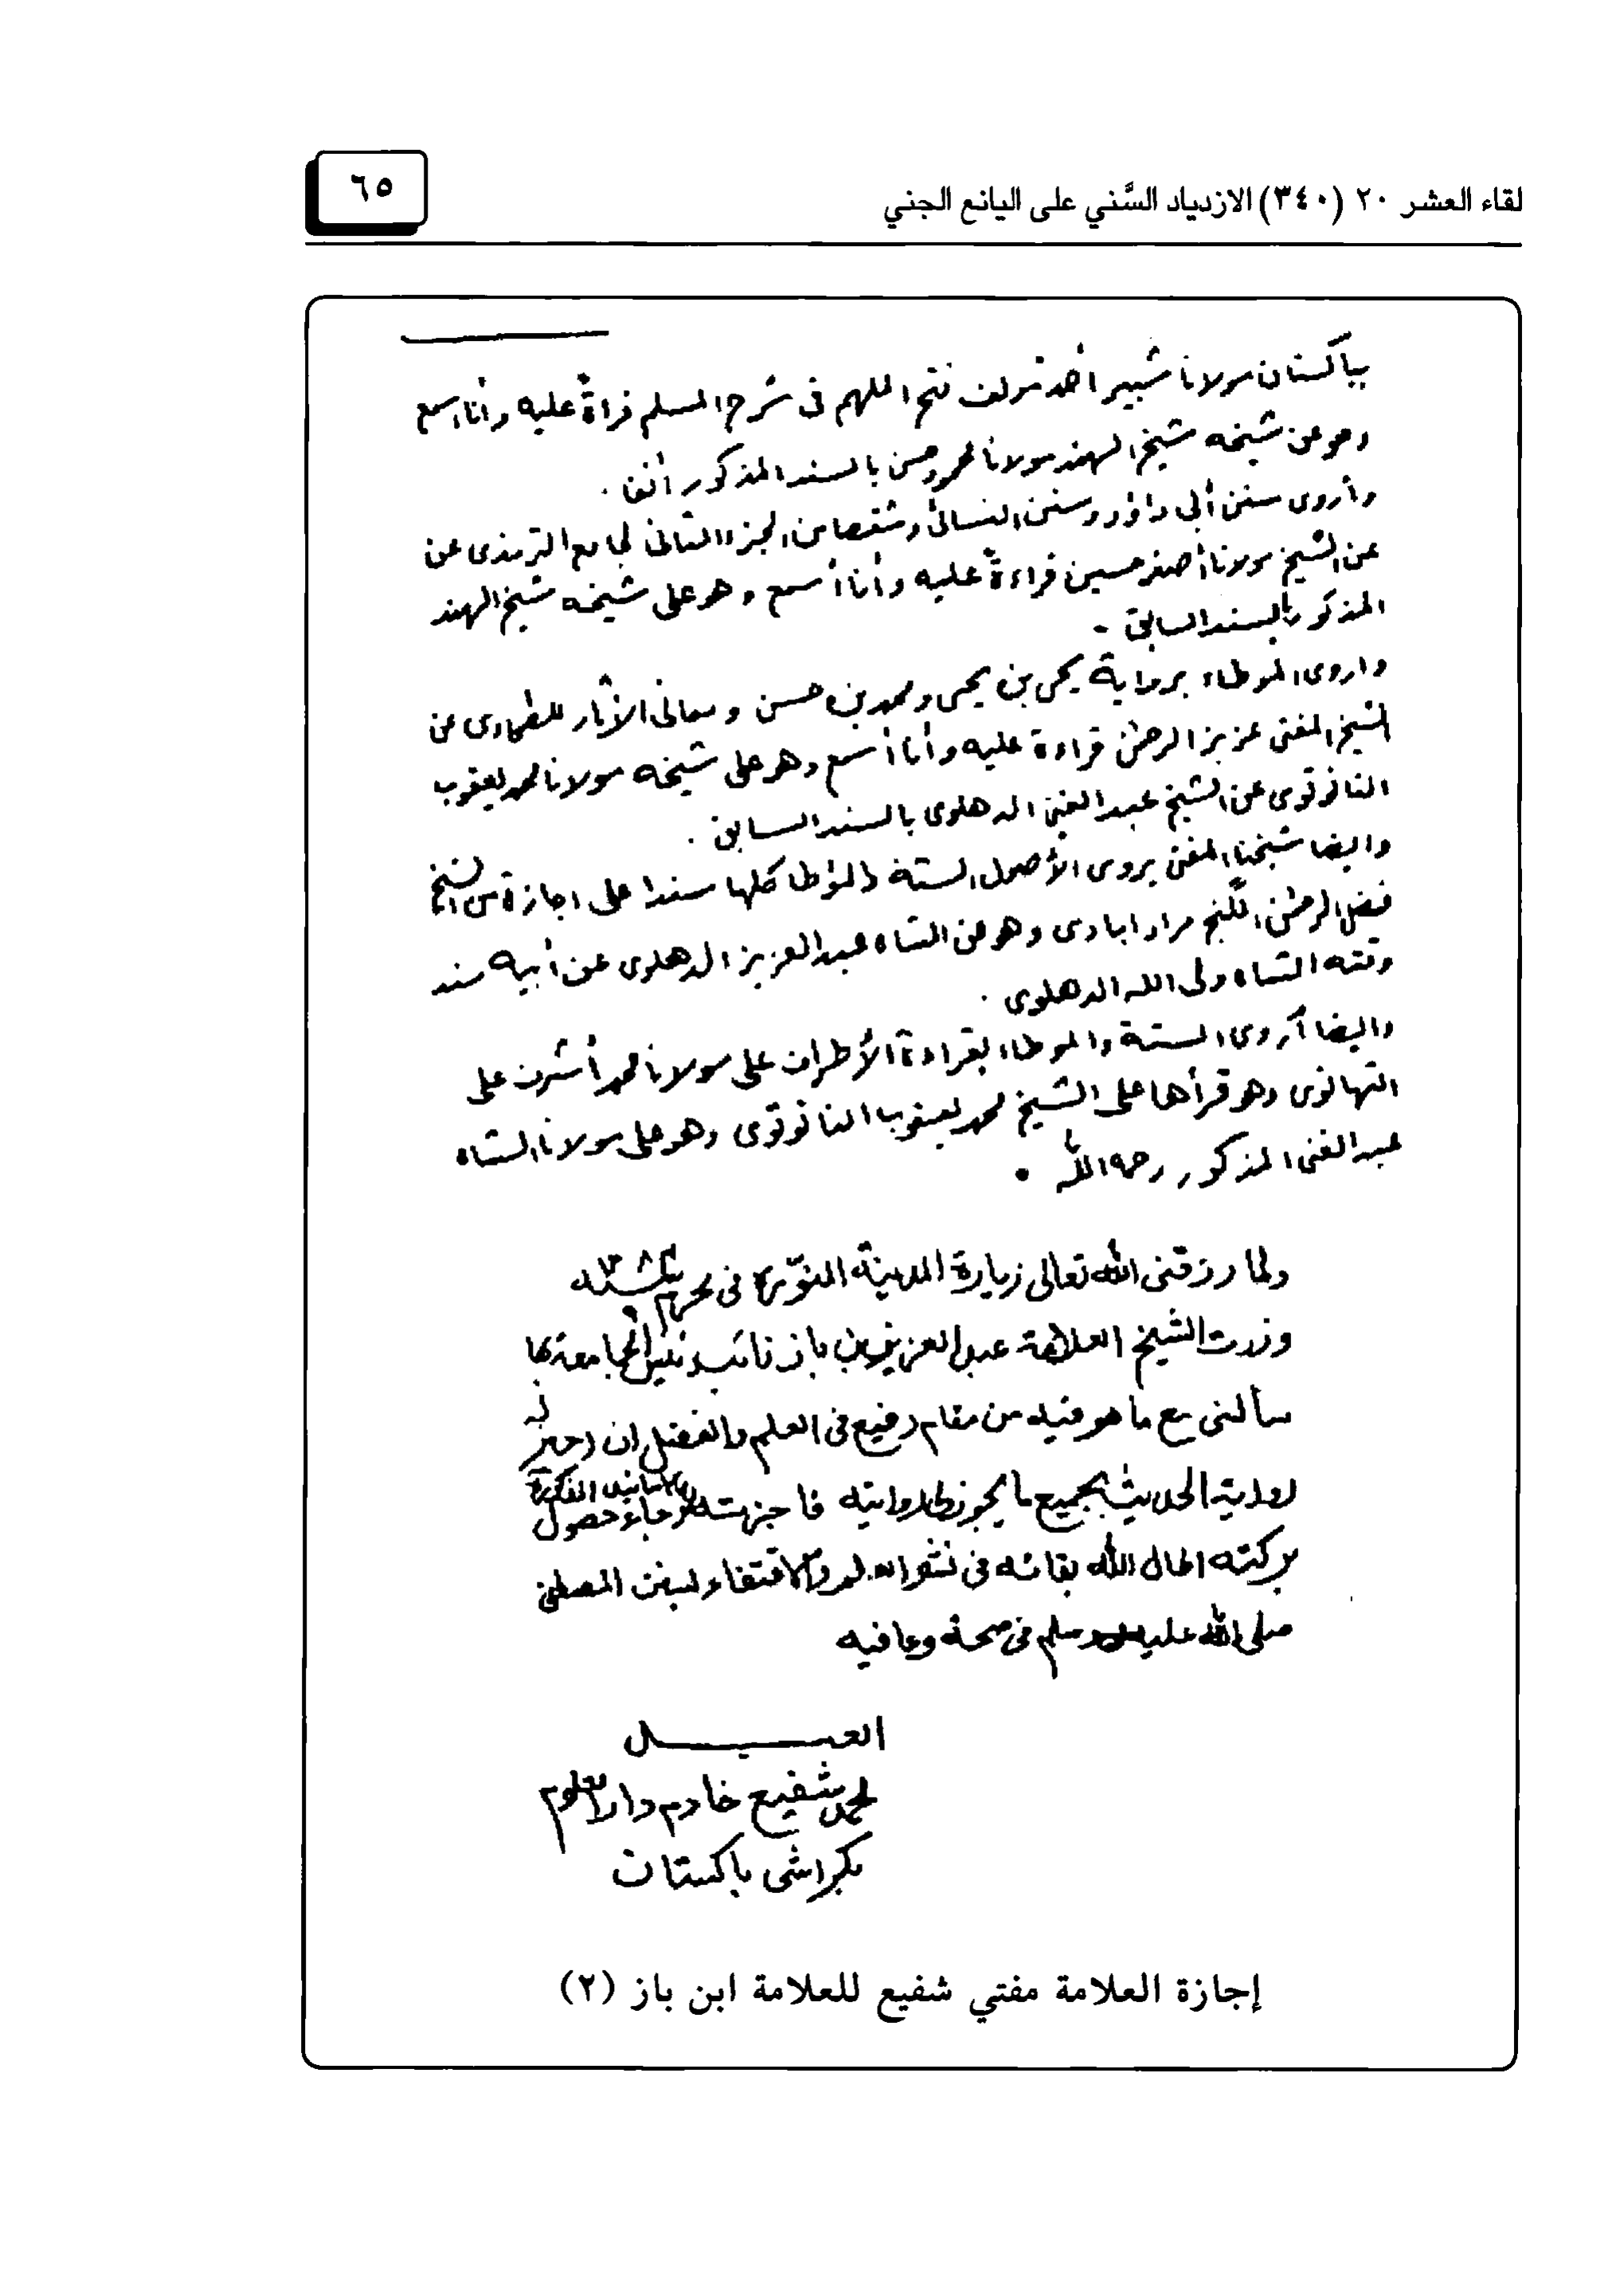 لقاء العشر ٢٠ (٣٤٠) الازدياد السَّني على اليانع الجني
٦٥
بباكستان مولانا شبير أحمد مؤلف فتح الملهم فى شرح المسلم قراةً عليه وأنا اسمع
وهو عن شيخه شيخ الهند مولانا محمود حسن بالسند المذكور أنفا .
وأروى سنن أبي داؤد وسنن النسائى وشقصا من الجزء الثانى لجامع الترمذى عن
عن الشيخ مولانا أصغر حسين قراءةً عليه وأنا أسمع وهو على شيخه شيخ الهند
المذكور بالسند السابق -
واروى الموطاء برواية يحيى بن يحيى ومحمد بن حسن ومعانى الأثار للطحاوى عن
الشيخ المفتى عزيز الرحمٰن قراءة عليه وأنا أسمع وهو على شيخه مولانا محمد يعقوب
النانوتوى عن الشيخ عبد الغنى الدهلوى بالسند السابق .
وايضا شيخنا المفتى يروى الأصول الستة والمؤطا كلها سندا على اجازة من الشيخ
فضل الرحمٰن الگنج مراد ابادى وهو عن الشاه عبد العزيز الدهلوى عن أبيه سند
وقته الشاه ولى الله الدهلوى .
وايضا أروى الستة والموطاء بقراءة الأطراف على مولانا محمد أشرف على
التهانوى وهو قرأها على الشيخ محمد يعقوب النانوتوى وهو على مولانا الشاه
عبد الغنى المذكور رحمه الله .
ولما رزقنى الله تعالى زيارة المدينة المنوّرة فى محرم
وزرت الشيخ العلامة عبد العزيز بن باز نائب رئيس الجامعة بها
سألنى مع ما هو فيه من مقام رفيع فى العلم والفضل ان اجيز له
رواية الحديث بجميع ما يجوز لى روايته فاجزته بالاسانيد المذكورة رجاء حصول
بركته اطال الله بقائه فى نشر العلم والاقتفاء لسنن المصطفى
صلى الله عليه وسلم فى صحة وعافيه
العبد
محمد شفيع خادم دار العلوم
بكراشى باكستان
إجازة العلامة مفتي شفيع للعلامة ابن باز (٢)